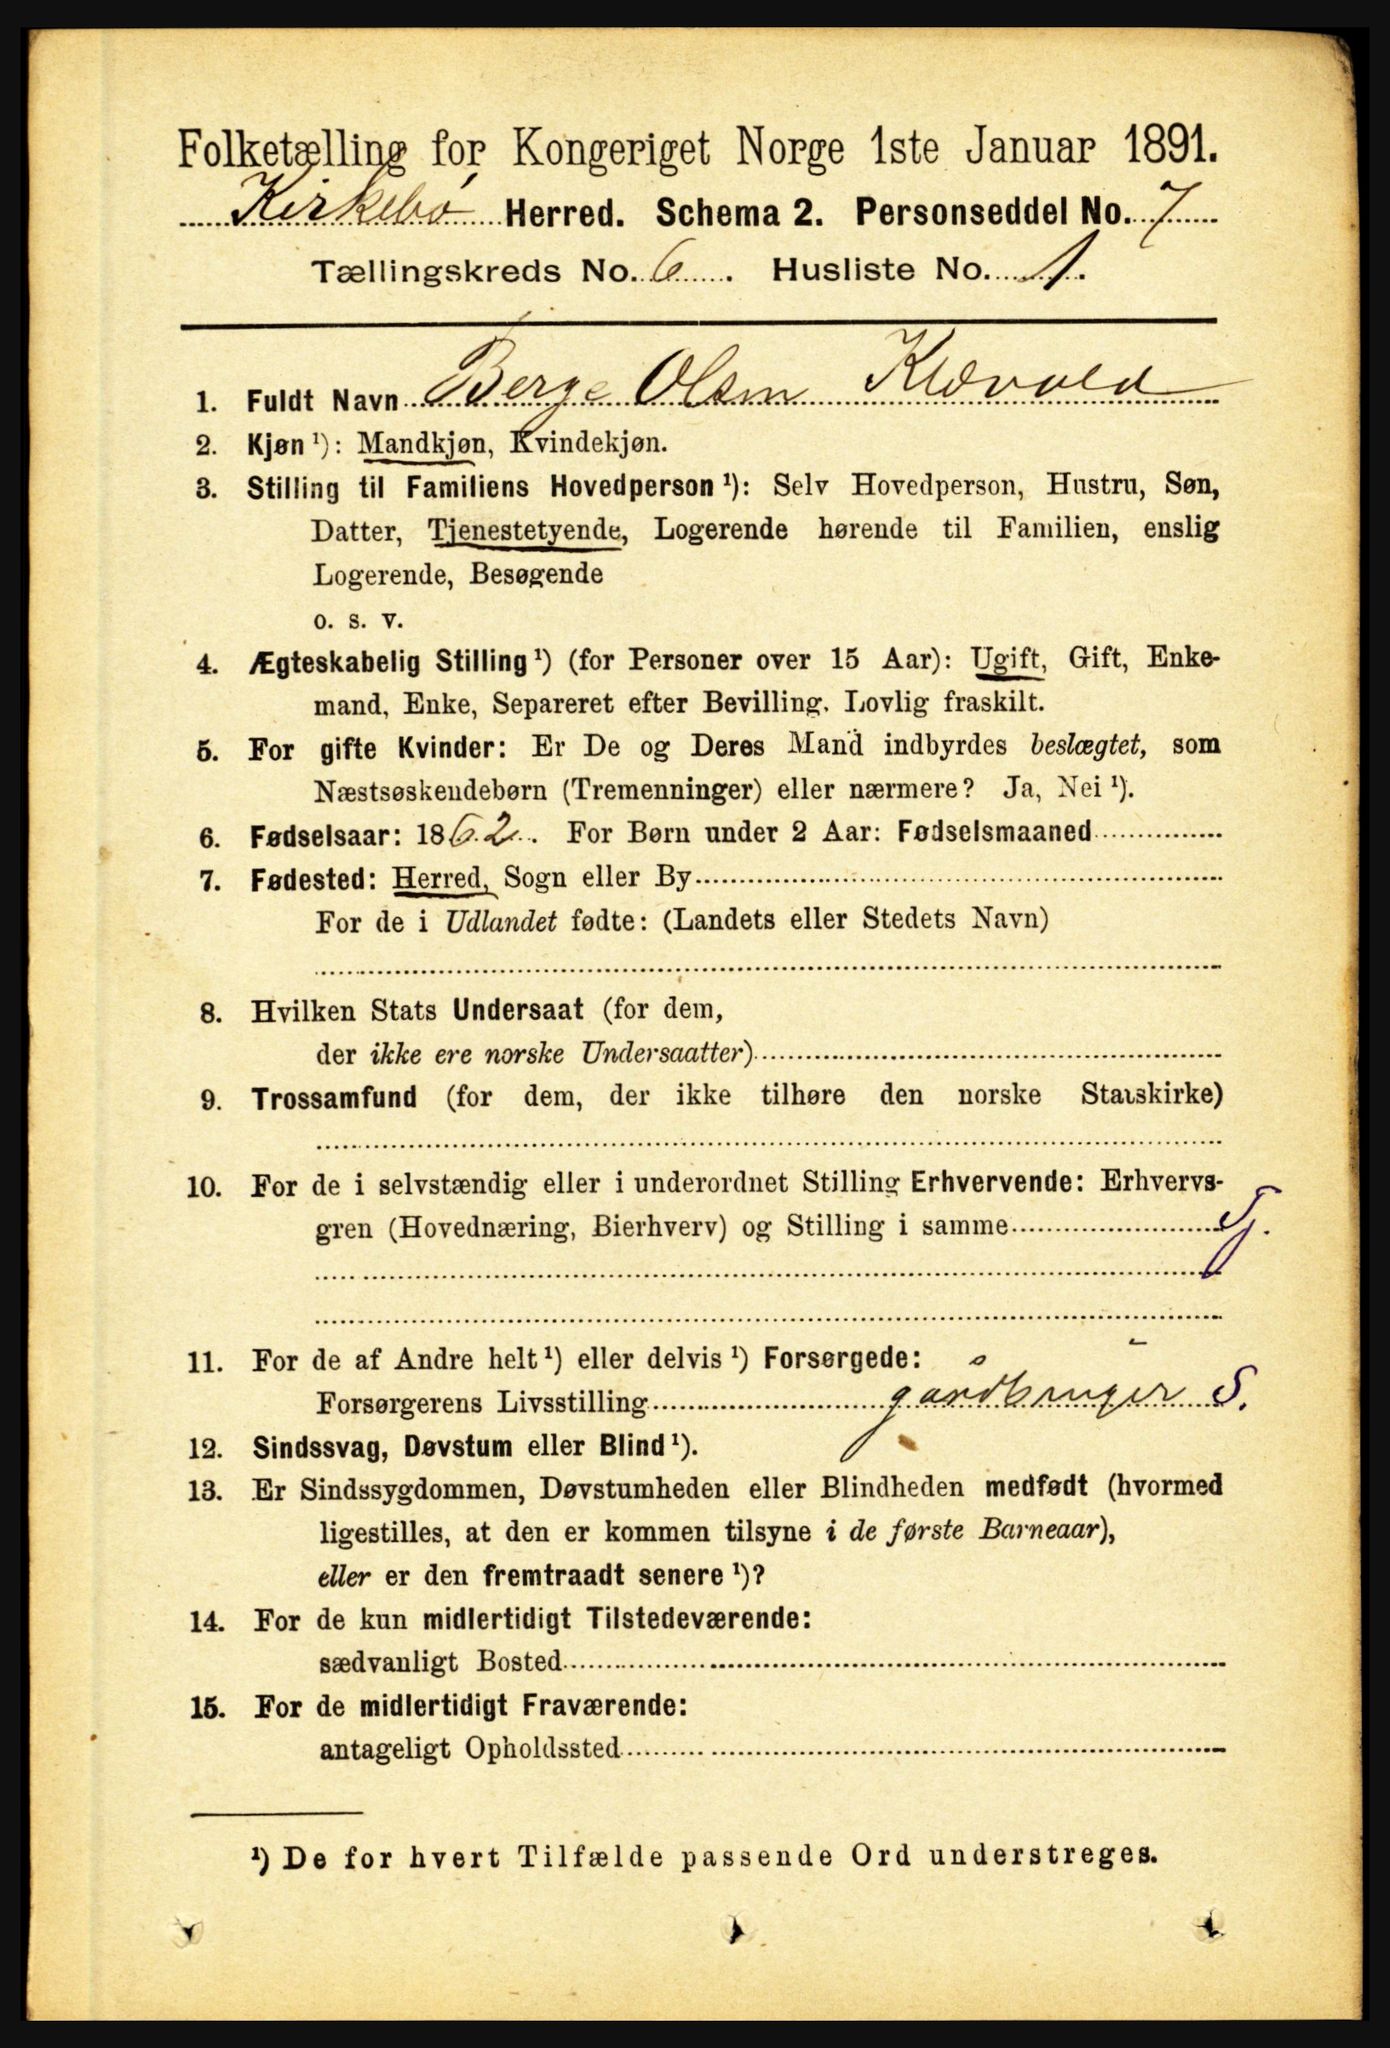 Folketælling for Kongeriget Norge 1ste Januar 1891.
Kirkebø Herred. Schema 2. Personseddel No. 7
Tællingskreds No. 6. Husliste No. 1.
1. Fuldt Navn Berge Olsen Klævold
2. Kjøn ¹): Mandkjøn, Kvindekjøn.
3. Stilling til Familiens Hovedperson ¹): Selv Hovedperson, Hustru, Søn,
Datter, Tjenestetyende, Logerende hørende til Familien, enslig
Logerende, Besøgende
o. s. v.
4. Ægteskabelig Stilling ¹) (for Personer over 15 Aar): Ugift, Gift, Enke-
mand, Enke, Separeret efter Bevilling. Lovlig fraskilt.
5. For gifte Kvinder: Er De og Deres Mand indbyrdes beslægtet, som
Næstsøskendebørn (Tremenninger) eller nærmere? Ja, Nei ¹).
6. Fødselsaar: 1862. For Børn under 2 Aar: Fødselsmaaned
7. Fødested: Herred, Sogn eller By
For de i Udlandet fødte: (Landets eller Stedets Navn)
8. Hvilken Stats Undersaat (for dem,
der ikke ere norske Undersaatter)
9. Trossamfund (for dem, der ikke tilhøre den norske Statskirke)
10. For de i selvstændig eller i underordnet Stilling Erhvervende: Erhvervs-
gren (Hovednæring, Bierhverv) og Stilling i samme Tj.
11. For de af Andre helt ¹) eller delvis ¹) Forsørgede:
Forsørgerens Livsstilling gårdbruger S.
12. Sindssvag, Døvstum eller Blind ¹).
13. Er Sindssygdommen, Døvstumheden eller Blindheden medfødt (hvormed
ligestilles, at den er kommen tilsyne i de første Barneaar),
eller er den fremtraadt senere ¹)?
14. For de kun midlertidigt Tilstedeværende:
sædvanligt Bosted
15. For de midlertidigt Fraværende:
antageligt Opholdssted
¹) De for hvert Tilfælde passende Ord understreges.